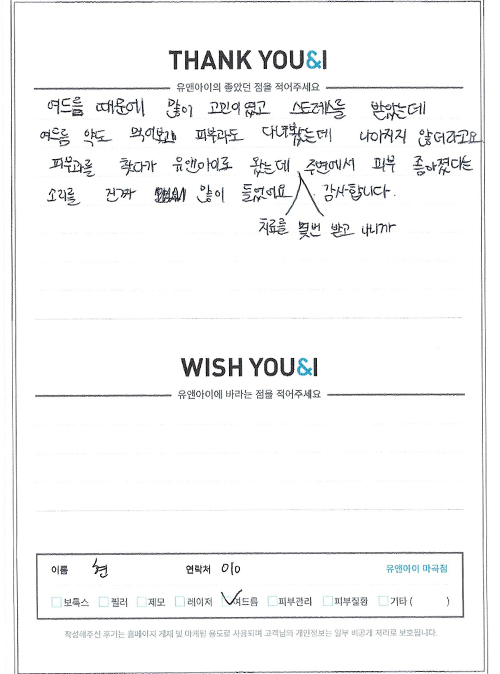 THANK YOU&I
유앤아이의 좋았던 점을 적어주세요
여드름 때문에 많이 고민이였고 스트레스를 받았는데
여드름 약도 먹어보고 피부과도 다녀봤는데 나아지지 않더라고요
피부과를 찾다가 유앤아이로 왔는데 주변에서 피부 좋아졌다는
소리를 진짜 많이 들었어요. 감사합니다.
치료를 몇번 받고 나니까
WISH YOU&I
유앤아이에 바라는 점을 적어주세요
이름 현 연락처 010 유앤아이 마곡점
보톡스 필러 제모 레이저 여드름 피부관리 피부질환 기타 ( )
작성해주신 후기는 홈페이지 게재 및 마케팅 용도로 사용되며 고객님의 개인정보는 일부 비공개 처리로 보호됩니다.